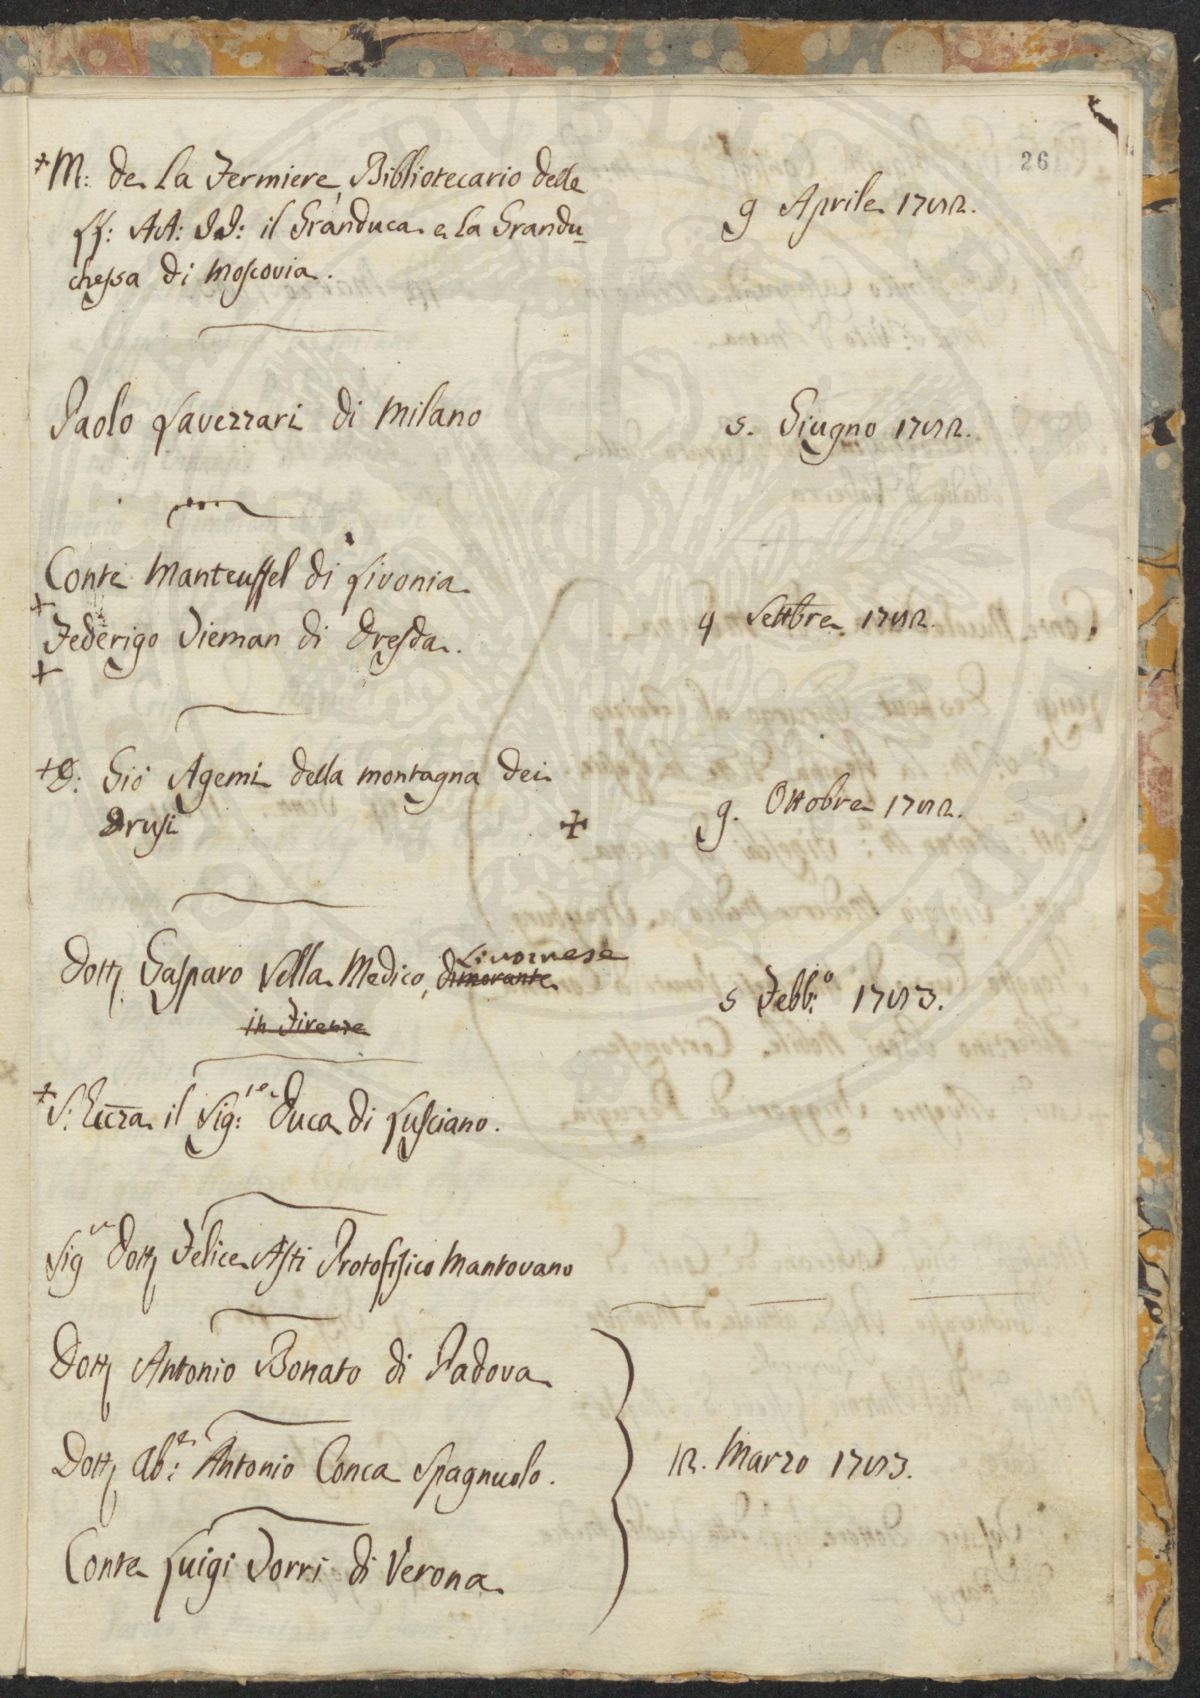 26
+ M: de La Fermiere, Bibliotecario delle
LL: AA: II: il Granduca e la Grandu-
chessa di Moscovia.
9 Aprile 1782.
Paolo Lavezzari di Milano
5. Giugno 1782.
Conte Manteuffel di Livonia
+
Federigo Vieman di Dresda.
+
4 Settbre 1782.
+ D: Gio Agemi della montagna dei
Drusi
+
9. Ottobre 1782.
Livornese
Dott. Gasparo Vella Medico, dimorante
in Firenze
5 Febb:o 1783.
+ S. Ecc̄za il Sig:re Duca di Lusciano.
Sigr Dott. Felice Asti Protofisico Mantovano
Dott. Antonio Bonato di Padova
Dott. Ab:e Antonio Conca Spagnuolo.
12. Marzo 1783.
Conte Luigi Torri di Verona